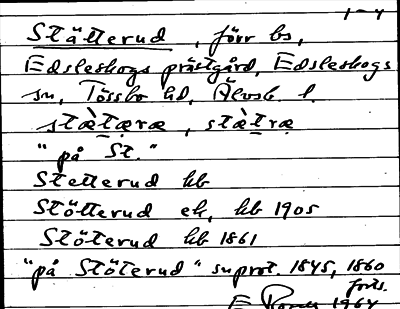 1-4
Stätterud, förr bs,
Edsleskogs prästgård, Edsleskogs
sn, Tössbo hd, Älvsb. l.
stæ̀tæræ, stæ̀træ
"på St."
Stetterud kb
Stötterud ek, kb 1905
Stöterud kb 1861
"på Stöterud" sn prot. 1845, 1860
forts.
E 1964